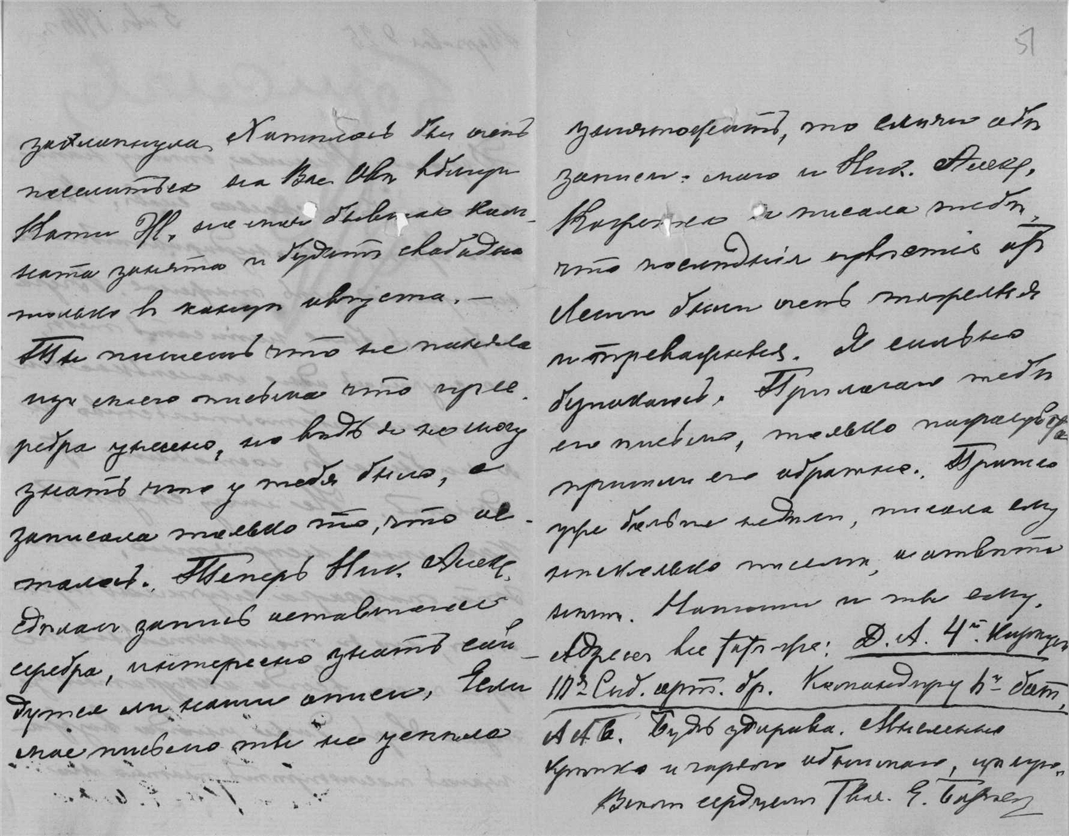 захлопнула. Хотѣлось бы очень
поселиться на Вас. Овѣ вблизи
Кати Ж, но моя бывшая ком-
ната занята и будетъ свободна
только в концѣ августа. —
Ты пишешь что не поняла
изъ моего письма что изъ се-
ребра унесено, но вѣдь я не могу
знать что у тебя было, я
записала только то, что ос-
талось. Теперь Ник. Алекс.
сдѣлалъ запись оставшагося
серебра, интересно узнать сой-
дутся ли наши описи. Если
мое письмо ты не успѣла
уничтожить, то сличи обѣ
записи - мою и Ник. Алекс.
Кажется я писала тебѣ,
что послѣднія извѣстія объ
были очень тяжелыя
и тревожныя. Я сильно
безпокоюсь. Прилагаю тебѣ
его письмо, только пожалуйста
пришли его обратно. Прошло
уже больше недѣли, писала ему
нѣсколько писемъ, а отвѣта
нѣтъ. Напиши и ты ему.
Адресъ все тотъ-же: Д. А. 4й Корпусъ
Сиб. арт. бр. Командиру 6й бат.
А. А. Б. Будь здорова. Мысленно
крѣпко и горячо обнимаю, цѣлую.
Всѣмъ сердцемъ Твоя Е.